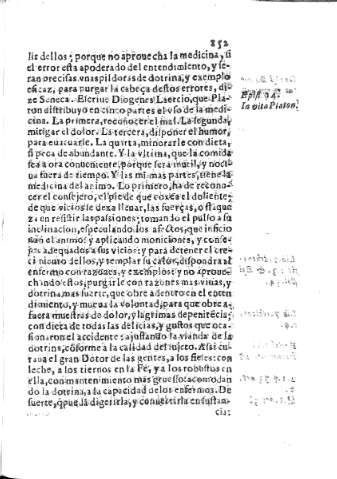 252
lir dellos; porque no aprouecha la medicina, si
el error esta apoderado del entendimiento, y se-
ran precisas vnas pildoras de dotrina, y exemplo
eficaz, para purgar la cabeça destos errores, di-
ze Seneca. Escriue Diogenes Laercio, que Pla-
ton distribuyo en cinco partes el vso de la medi-
cina. La primera, reconocer el mal. La segunda,
mitigar el dolor. La tercera, disponer el humor,
para euacuarle. La quarta, minorarle con dieta,
si peca de abundante. Y la vltima, que la comida
sea a ora conueniente, porque sera inutil, y noci-
ua fuera de tiempo. Y las mismas partes, tiene la
medicina del animo. Lo primero, ha de recono-
cer el consejero, el pie de que coxea el doliente,
de que vicio se dexa lleuar, las fuerças, o flaque
za en resistir las passiones, tomando el pulso a su
inclinacion, especulando los afectos, que inficio
nan el animo: y aplicando moniciones, y conse-
jos adequados a sus vicios: y para detener el cre-
cimiento dellos, y templar su calor, dispondra al
enfermo con razones, y exemplos: y no aproue-
chando estos, purgarle con razones mas viuas, y
dotrina mas fuerte, que obre adentro en el enten
dimiento, y mueua la voluntad, para que obre a-
fuera muestras de dolor, y lagrimas de penitẽcia,
con dieta de todas las delicias, y gustos que oca-
sionaron el accidente: ajustando la vianda de la
dotrina, cõforme a la calidad del sujeto. Assi cu-
raua el gran Dotor de las gentes, a los fieles: con
leche, a los tiernos en la Fè, y a los robustos en
ella, con mantenimiento mas gruesso: acomodan
do la dotrina, a la capacidad de los enfermos. De
suerte, q̃ pueda digerirla, y conuertirla en sustan-
cia:
Epist. 94.
In vita Platon.